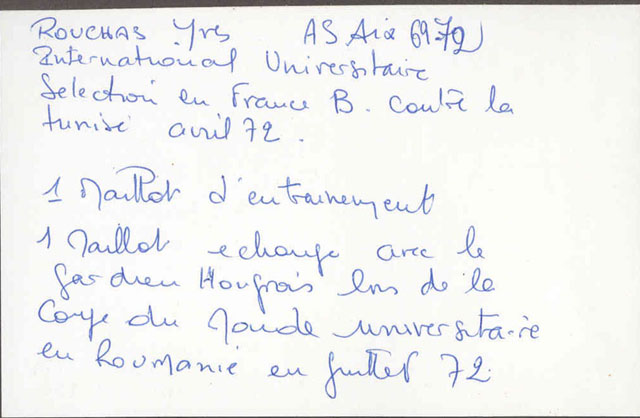 ROUCHAS Yves AS Aix 69-72
International Universitaire
Selection en France B. contre la
tunisie avril 72.
1 Maillot d'entrainement
1 Maillot echange avec le
gardien Hongrois lors de la
Coupe du Monde universitaire
en Roumanie en Juillet 72